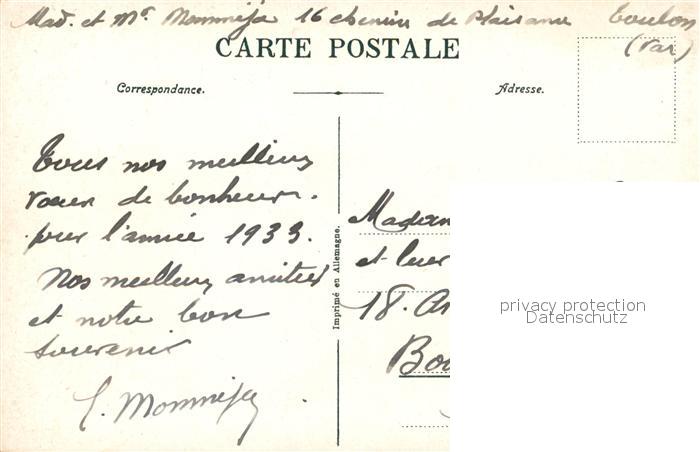 Mad. et Mr Mommeja 16 chemin de Plaisance Toulon
(Var)
CARTE POSTALE
Correspondance.
Adresse.
Tous nos meilleurs
vœux de bonheur.
pour l'année 1933.
Nos meilleurs amitiés
et notre bon
souvenir
Mommeja
Imprimé en Allemagne.
Madam
et leur
18. A
Bou
privacy protection
Datenschutz